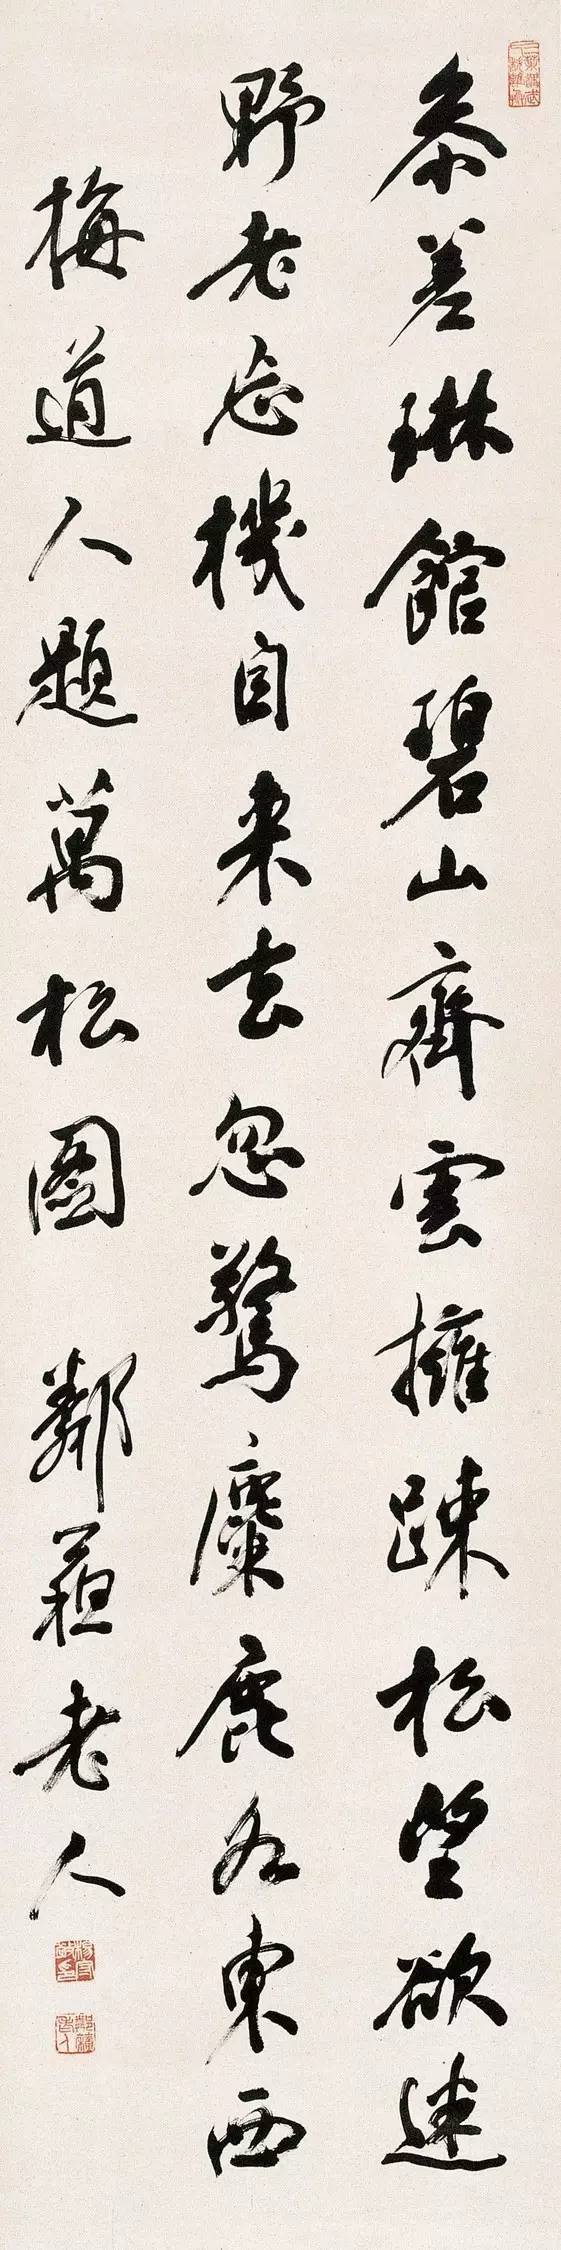 參差琳館碧山齊雲擁踈松望欲迷
野老忘機自來去忽驚麋鹿各東西
梅道人題萬松圖 鄰蘓老人